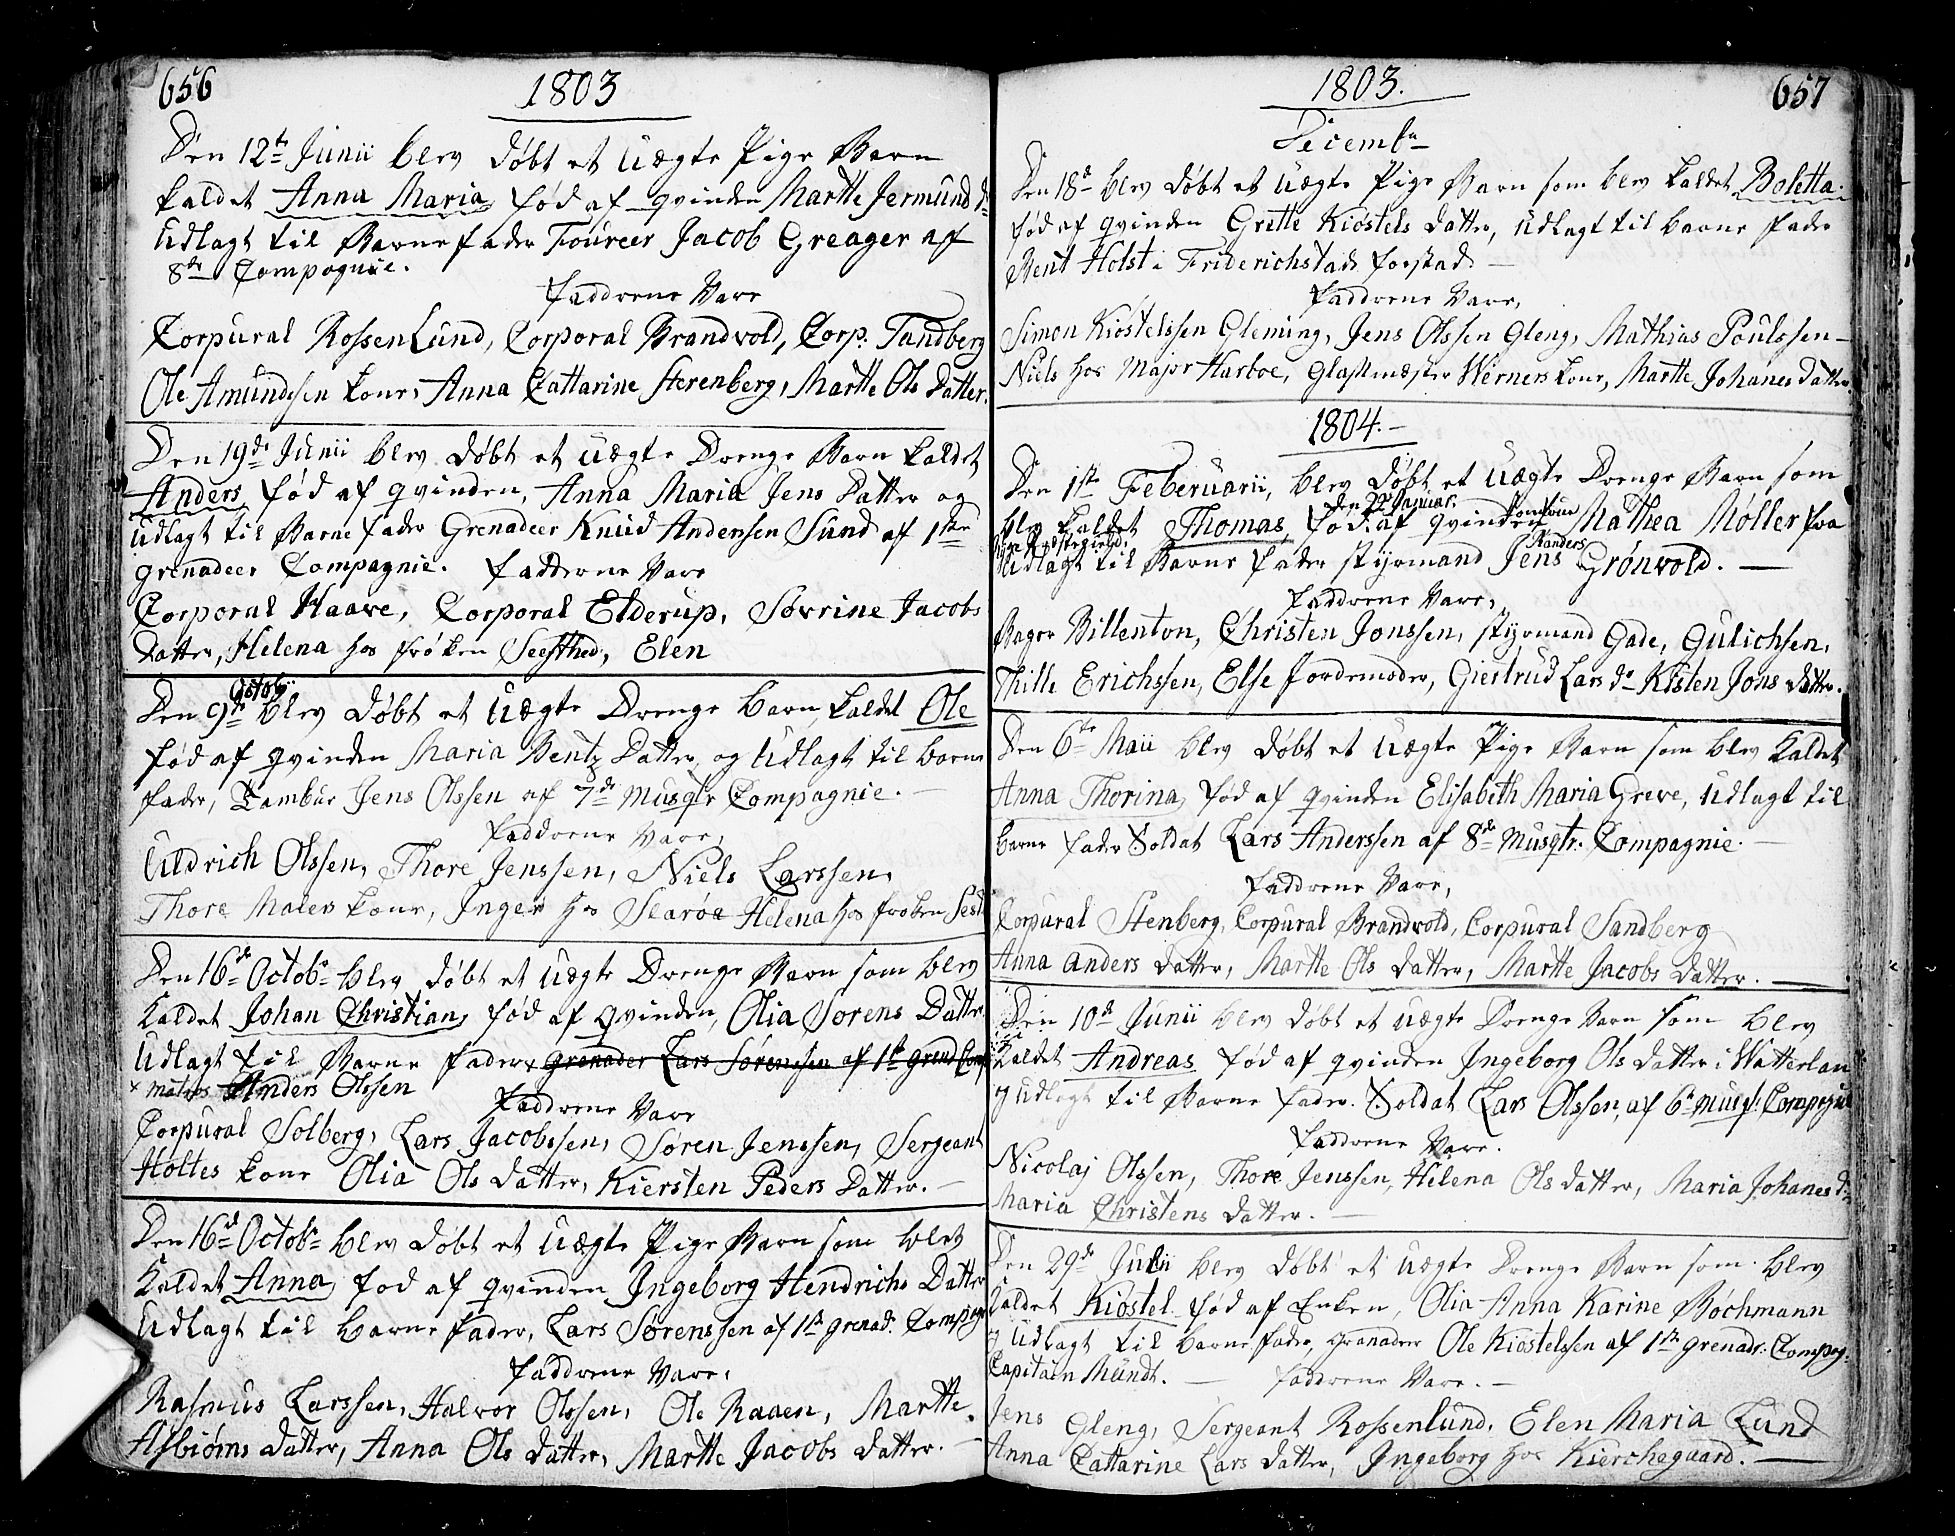 656
1803
Den 12te Junii blev døbt et Uægte Pige Barn
kaldet Anna Maria, fød af qvinden Marthe Jermund dr
Udlagt til Barne fader Foureer Jacob Greager af
8de Compagnie.
fadderne Vare
Corpural RossenLund, Corporal Brandvold, Corp: Tandberg
Ole Amundssen kone, Anna Cattarine Sterenberg, Marthe Ols Datter.
Den 19de Junii blev døbt et Uægte Drenge Barn kaldet
Anders, fød af qvinden, Anna Maria Jens Datter og
Udlagt til Barne fader Grenadeer Knud Anderssen Sund af 1ste
grenadeer Compagnie. fadderne Vare
Corporal Haave, Corporal Elderup, Søvrine Jacobs
Datter, Helena hos frøken Seested, Elen
Den 9de Octobr: blev døbt et Uægte Drenge barn, kaldet Ole
fød af qvinden Maria Bentz Datter, og Udlagt til barne
fader, Tambur Jens Olssen af 7de Musqtr Compagnie.
fadderne Vare,
Uldrich Olssen, Thore Jenssen, Niels Larssen,
Thore Malers kone, Inger hos Skarøe Helena hos frøken Sest
Den 16de Octobr blev døbt et Uægte Drenge Barn som blev
Kaldet Johan Christian, fød af qvinden, Olia Sørens Datter
Udlagt til Barne fader, grenader Lars Sørenssen af 1te Grend Comp
× matros Anders Olssen
fadderne Vare
Corpural Solberg, Lars Jacobssen, Søren Jenssen, Sergeant
Holtes kone Olia Ols datter, Kiersten Peders Datter.
Den 16de Octobr blev døbt et Uægte Pige Barn som blev
Kaldet Anna, fød af qvinden Ingeborg Hendrichs Datter
Udlagt til barne fader, Lars Sørenssen af 1te grenad. Compag
fadderne Vare,
Rasmus Larssen, Halvor Olssen, Ole Raaen, Marthe
Asbiørns datter, Anna Ols datter, Marthe Jacobs datter.
657
1803.
Decembr
Den 18de blev døbt et Uægte Pige Barn som blev kaldet Boletta.
fød af qvinden Grette Kiøstels datter, Udlagt til barne fader
Bent Holst i Friderichstads forstad.
fadderne Vare,
Simon Kiøstelssen Gleming, Jens Olssen Gleng, Mathias Poulssen
Niels hos Major Harboe, Glassmæster Werners kone, Marthe Johanes datter
1804.
Den 1ste Februarii, blev døbt et Uægte Drenge Barn som
den 22 Januar. Jomfrue
blev kaldet Thomas, fød af qvinden Mathea Møller fra
Randers
Udlagt til Barne fader styrmand Jens Grønvold.
fadderne Vare,
Bager Billenton, Christen Jonssen, styrmand Gade, Gulichsen,
Thille Erichssen, Else Jordemoder, Giertrud Lars dr Kisten Jons datter.
Den 6te Maii blev døbt et Uægte Pige Barn som blev Kaldet
Anna Thorina, fød af qvinden Elisabeth Maria Greve, Udlagt til
barne fader Soldat Lars Anderssen af 8de Musqtr. Compagnie.
fadderne Vare,
Corpural Stenberg, Corpural Brandvold, Corpural Sandberg
Anna Anders datter, Marthe Ols datter, Marthe Jacobs datter.
Den 10de Junii blev døbt et Uægte Drenge Barn som blev
Kaldet Andreas fød af qvinden Ingeborg Ols datter i Watterlan
Udlagt til Barne fader Soldat Lars Olssen, af 6te Musqt: Compagni
fadderne Vare.
Nicolaj Olssen, Thore Jenssen, Helena Ols datter, Maria Johanes dr
Maria Christens datter.
Den 29de Julii blev døbt et Uægte Drenge Barn som blev
Kaldet Kiøstel fød af Enken, Olia Anna Karine Bøchmann
Udlagt til barne fader, Granadeer Ole Kiøstelssen af 1ste grenadr. Compag:
Capitain Mundt. fadderne Vare.
Jens Gleng, Sergeant Rossenlund, Elen Maria Lund
Anna Cattarine Lars datter, Ingeborg hos Kierchegaard.